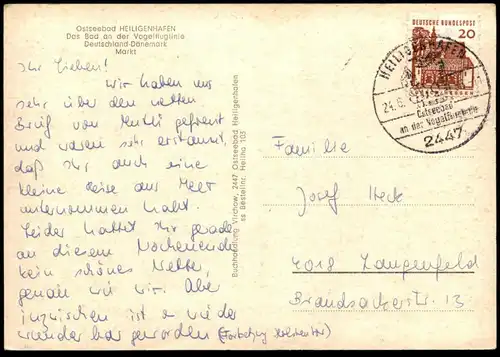 Ostseebad HEILIGENHAFEN
Das Bad an der Vogelfluglinie
Deutschland-Dänemark
Markt
Ihr Lieben!
Wir haben uns
sehr über den netten
Brief von gefreut
und waren sehr erstaunt,
daß Ihr auch eine
kleine Reise ans Meer
unternommen habt.
Leider hattet Ihr gerade
an diesem Wochenende
kein schönes Wetter,
genau wie wir. Aber
inzwischen ist es wieder
wunderbar geworden (Fortsetzung
Buchhandlung Virchow, 2447 Ostseebad Heiligenhafen
ss Bestellnr. Heilha 105
DEUTSCHE BUNDESPOST
20
HEILIGENHAFEN
Ostseebad
an der Vogelfluglinie
2447
Familie
Josef Heck
4018 Langenfeld
Brandsackerstr. 13